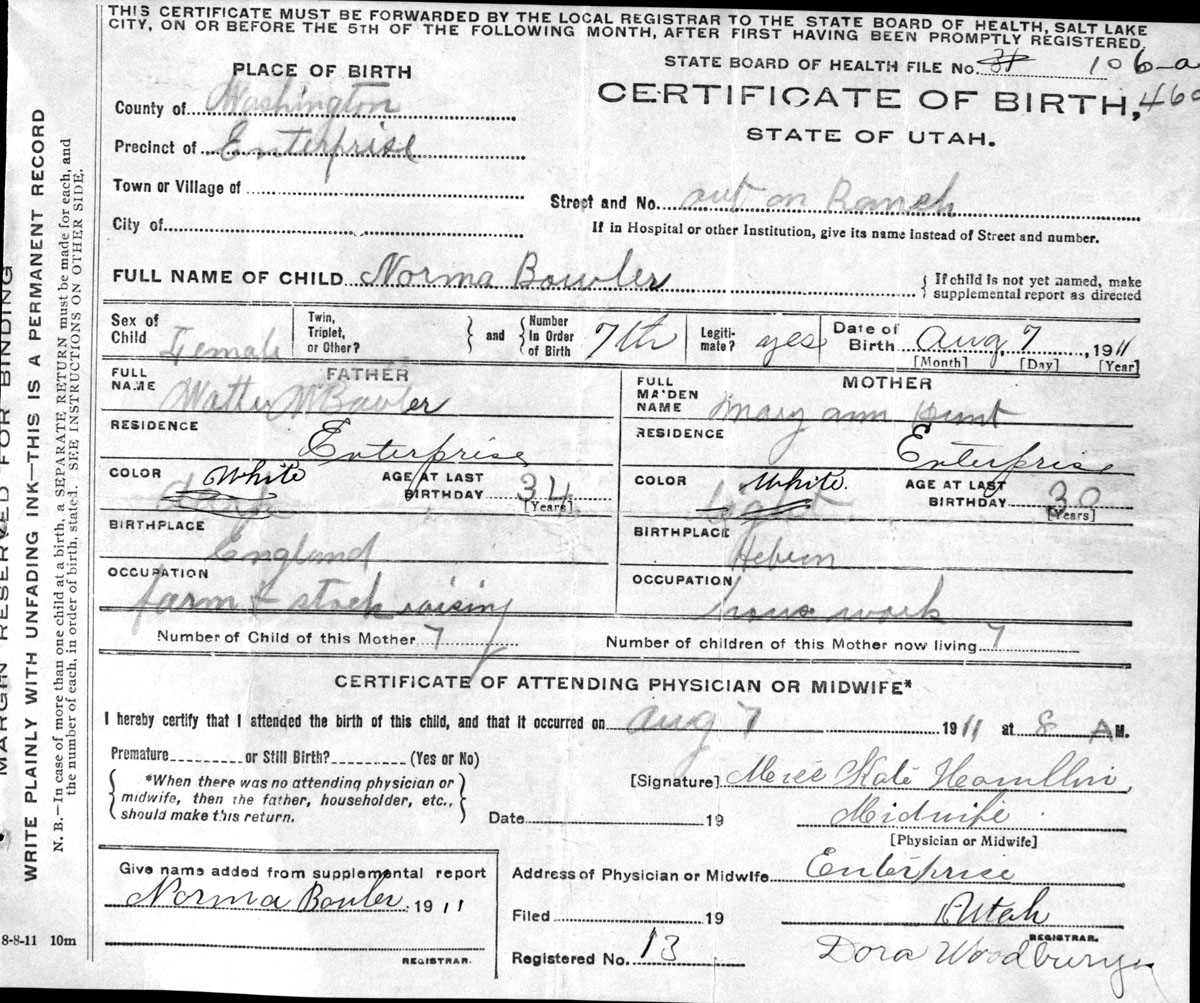 THIS CERTIFICATE MUST BE FORWARDED BY THE LOCAL REGISTRAR TO THE STATE BOARD OF HEALTH, SALT LAKE
CITY, ON OR BEFORE THE 5TH OF THE FOLLOWING MONTH, AFTER FIRST HAVING BEEN PROMPTLY REGISTERED.
STATE BOARD OF HEALTH FILE No. 106-a
460
PLACE OF BIRTH
CERTIFICATE OF BIRTH,
STATE OF UTAH.
County of Washington
Precinct of Enterprise
Town or Village of
Street and No. out on Ranch
City of
If in Hospital or other Institution, give its name instead of Street and number.
FULL NAME OF CHILD Norma Bowler
{ If child is not yet named, make
supplemental report as directed
Sex of Child Female
Twin, Triplet, or Other? } and { Number In Order of Birth 7th
Legiti-mate? yes
Date of Birth Aug, 7, 1911
[Month] [Day] [Year]
FATHER
FULL NAME Walter Bowler
MOTHER
FULL MAIDEN NAME Mary ann Hunt
RESIDENCE Enterprise
RESIDENCE Enterprise
COLOR White
AGE AT LAST BIRTHDAY 34
[Years]
COLOR light White.
AGE AT LAST BIRTHDAY 30
[Years]
BIRTHPLACE England
BIRTHPLACE Hebron
OCCUPATION farm & stock raising
OCCUPATION house work
Number of Child of this Mother 7
Number of children of this Mother now living 7
CERTIFICATE OF ATTENDING PHYSICIAN OR MIDWIFE*
I hereby certify that I attended the birth of this child, and that it occurred on aug 7 1911 at 8 AM.
Premature or Still Birth? (Yes or No)
{ *When there was no attending physician or }
midwife, then the father, householder, etc.,
should make this return.
[Signature] Kate Hamlin
Date 19
Midwife
[Physician or Midwife]
Give name added from supplemental report
Norma Bowler 1911
REGISTRAR.
Address of Physician or Midwife Enterprise
Utah
Filed 19
REGISTRAR.
Registered No. 13
Dora Woodbury
8-8-11 10m
MARGIN RESERVED FOR BINDING
WRITE PLAINLY WITH UNFADING INK—THIS IS A PERMANENT RECORD
N. B.—In case of more than one child at a birth, a SEPARATE RETURN must be made for each, and
the number of each, in order of birth, stated. SEE INSTRUCTIONS ON OTHER SIDE.